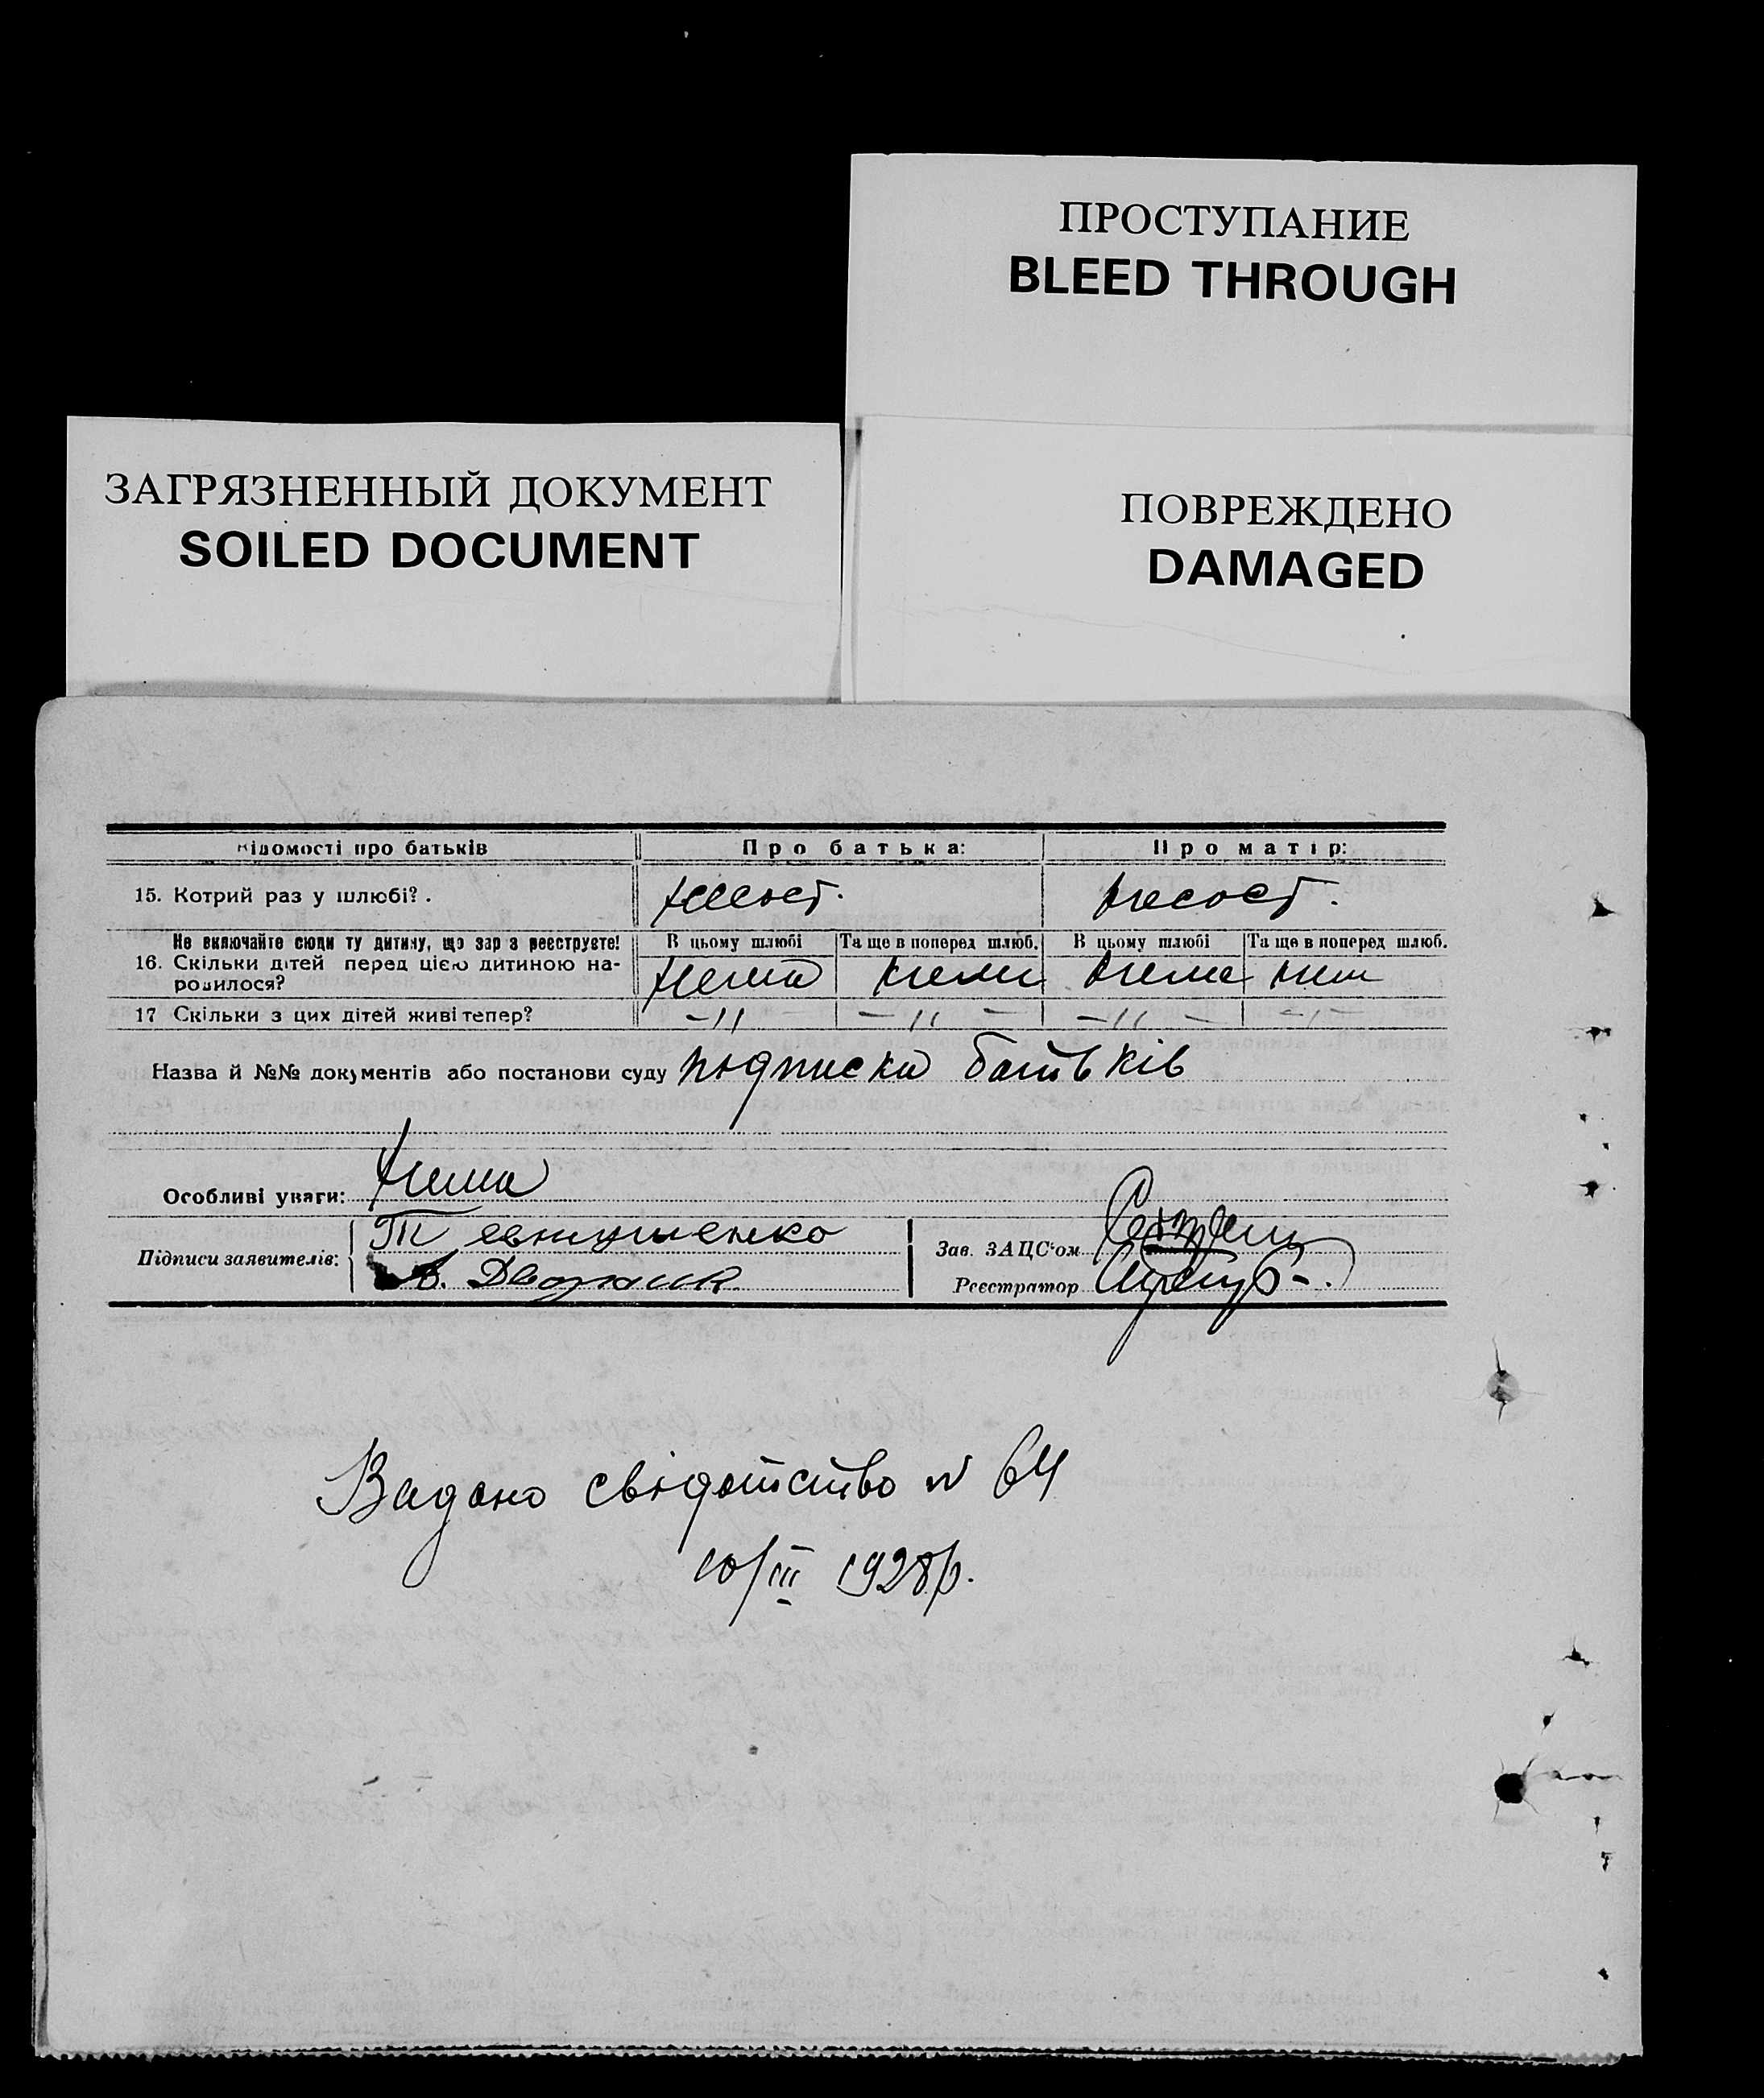 ПРОСТУПАНИЕ
BLEED THROUGH
ЗАГРЯЗНЕННЫЙ ДОКУМЕНТ
SOILED DOCUMENT
ПОВРЕЖДЕНО
DAMAGED
ідомості про батьків Про батька: Про матір:
15. Котрий раз у шлюбі?.
Не включайте сюди ту дитину, що зар з реєструєте! В цьому шлюбі Та ще в поперед шлюб. В цьому шлюбі Та ще в поперед шлюб.
16. Скільки дітей перед цією дитиною на-
родилося? Нема нема нема нема
17 Скільки з цих дітей живі тепер? –〃 –〃– –〃– –〃–
Назва й №№ документів або постанови суду подписка батьків
Особливі уваги: Нема
Підписи заявителів: Т евтушенко
Дворник
Зав. ЗАЦС'ом
Реєстратор
Видано свідотство N 64
10/III 1928р.